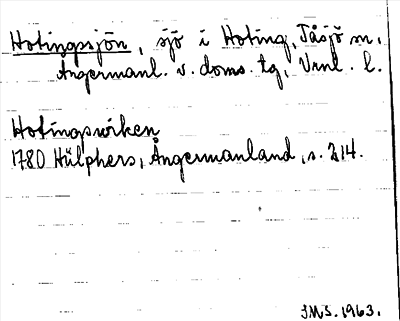 Hotingsjön, sjö i Hoting, Tåsjö sn,
Ångermanl. v. doms. tg, Vrnl. l.
Hotingsviken
1780 Hülphers, Ångermanland, s. 214.
JMS. 1963.